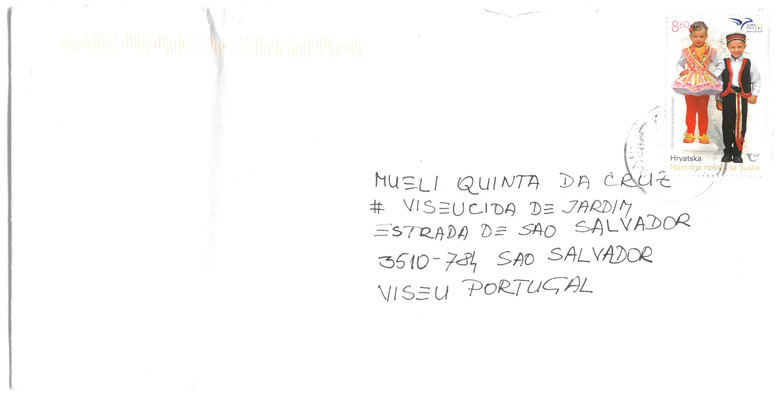 8,60
Hrvatska
Narodna nošnja sa Suska
MUELI QUINTA DA CRUZ
# VISEUCIDA DE JARDIM
ESTRADA DE SAO SALVADOR
3510-784 SAO SALVADOR
VISEU PORTUGAL